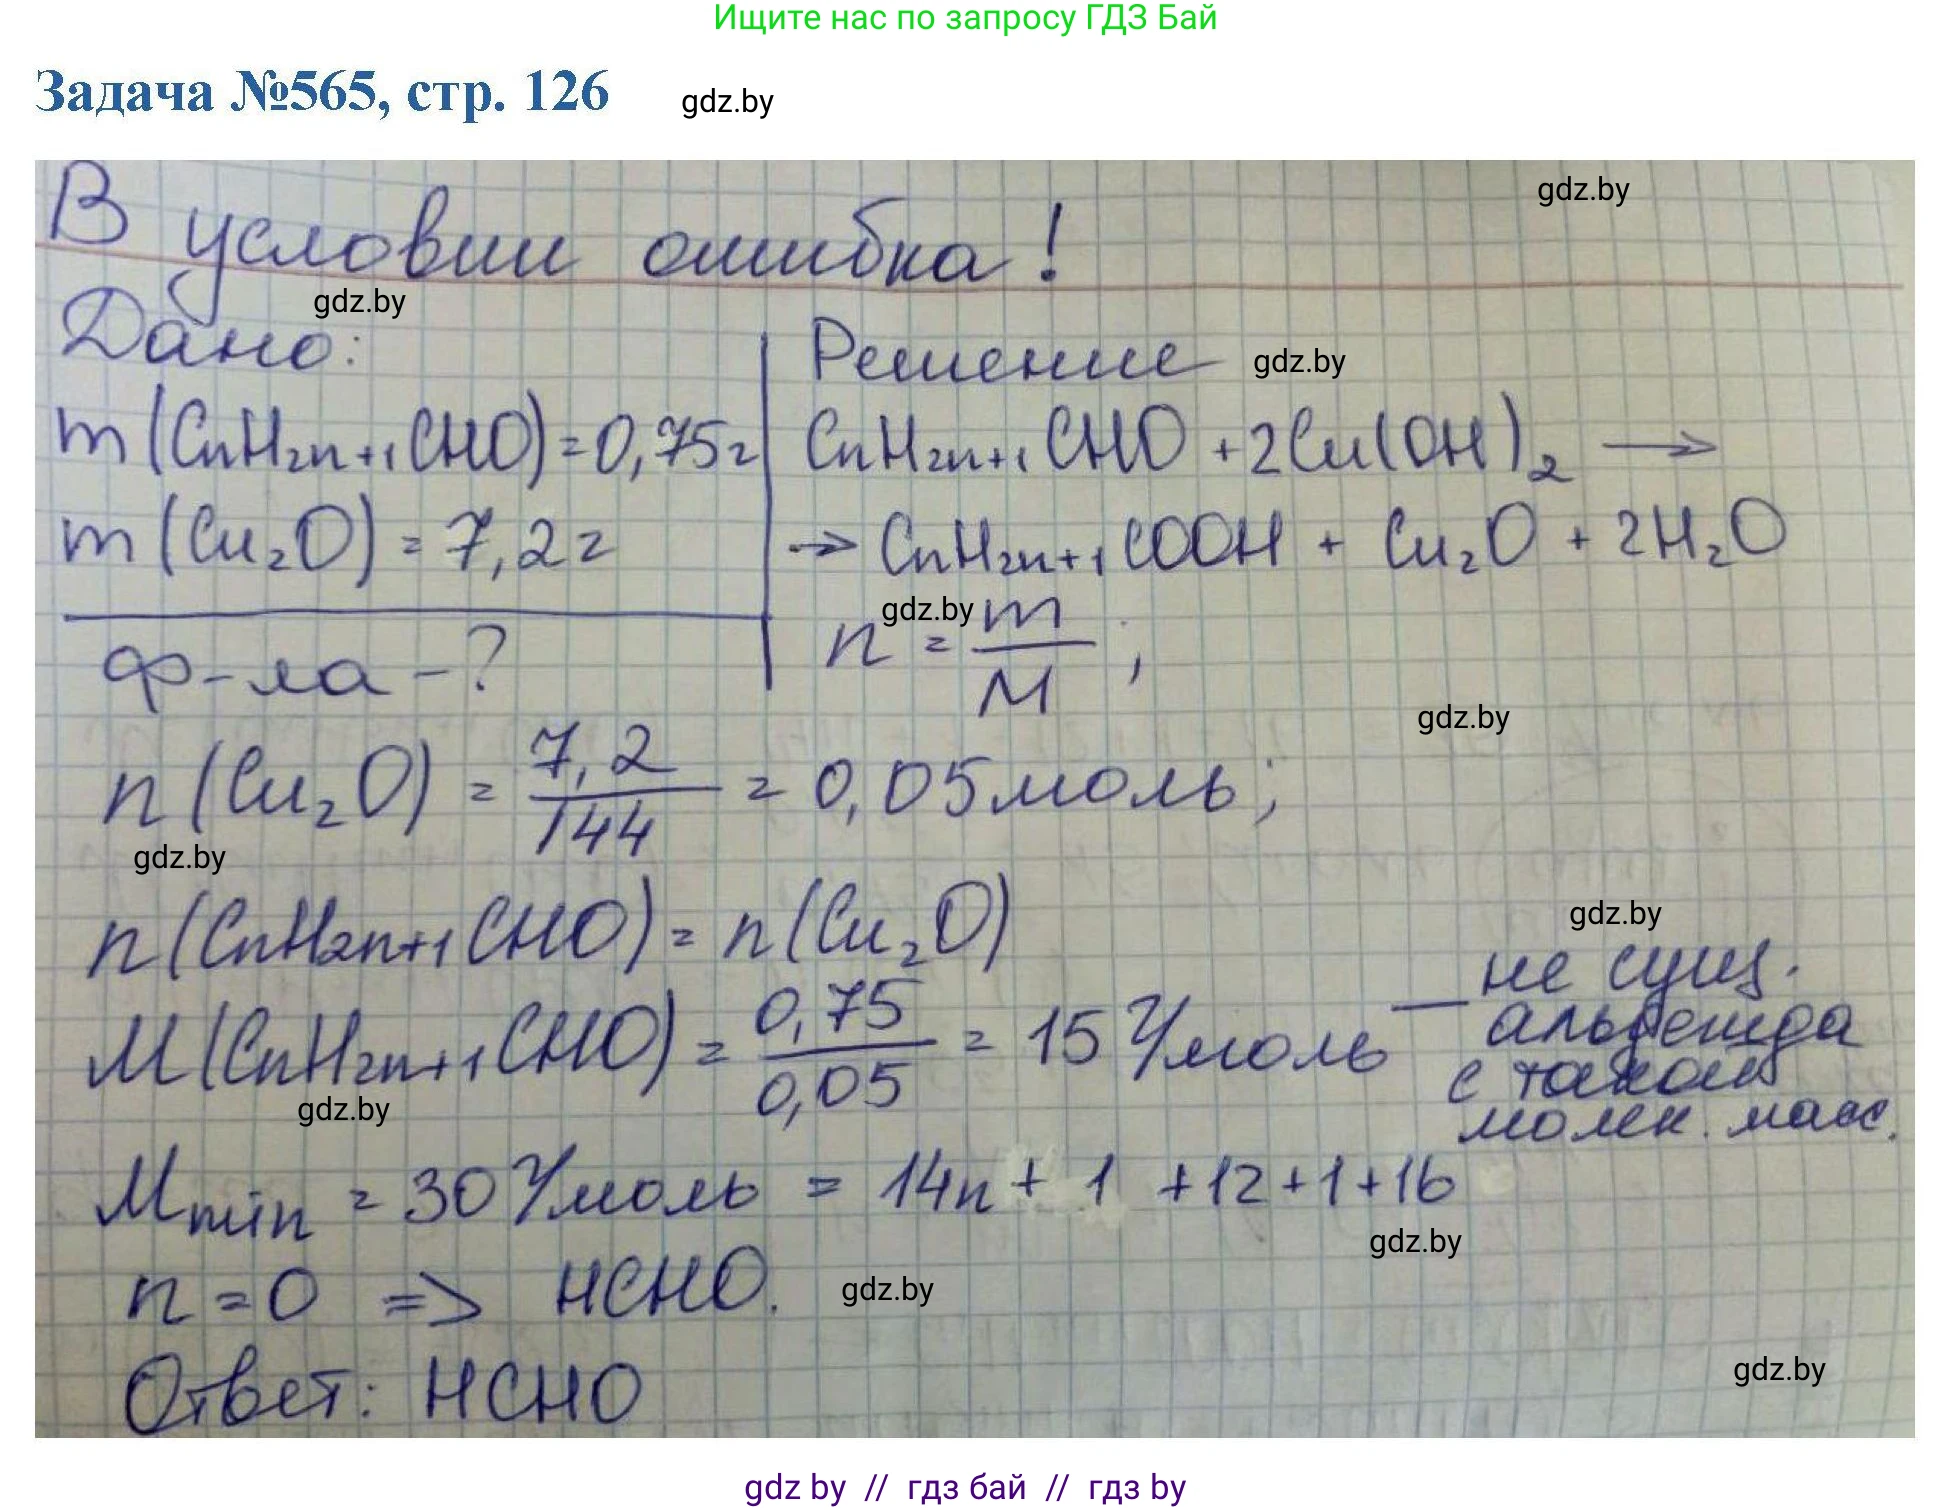 Ищите нас по запросу ГДЗ Бай
Задача №565, стр. 126
gdz.by
gdz.by
В условии ошибка!
gdz.by
Дано:
Решение
gdz.by
m(CnH₂n+1CHO)=0,75г
CnH₂n+1CHO+2Cu(OH)₂ →
m(Cu₂O)=7,2г
→ CnH₂n+1COOH + Cu₂O + 2H₂O
gdz.by
ф-ла-?
n = m/M;
gdz.by
n(Cu₂O) = 7,2/144 = 0,05моль;
gdz.by
n(CnH2n+1CHO) = n(Cu₂O)
gdz.by
M(CnH₂n+1CHO) = 0,75/0,05 = 15 г/моль — не сущ.
альдегида
с такой
молек. масс.
gdz.by
Mmin = 30 г/моль = 14n + 1 + 12 + 1 + 16
gdz.by
n = 0 => HCHO.
gdz.by
Ответ: HCHO
gdz.by
gdz by // гдз бай // гдз by